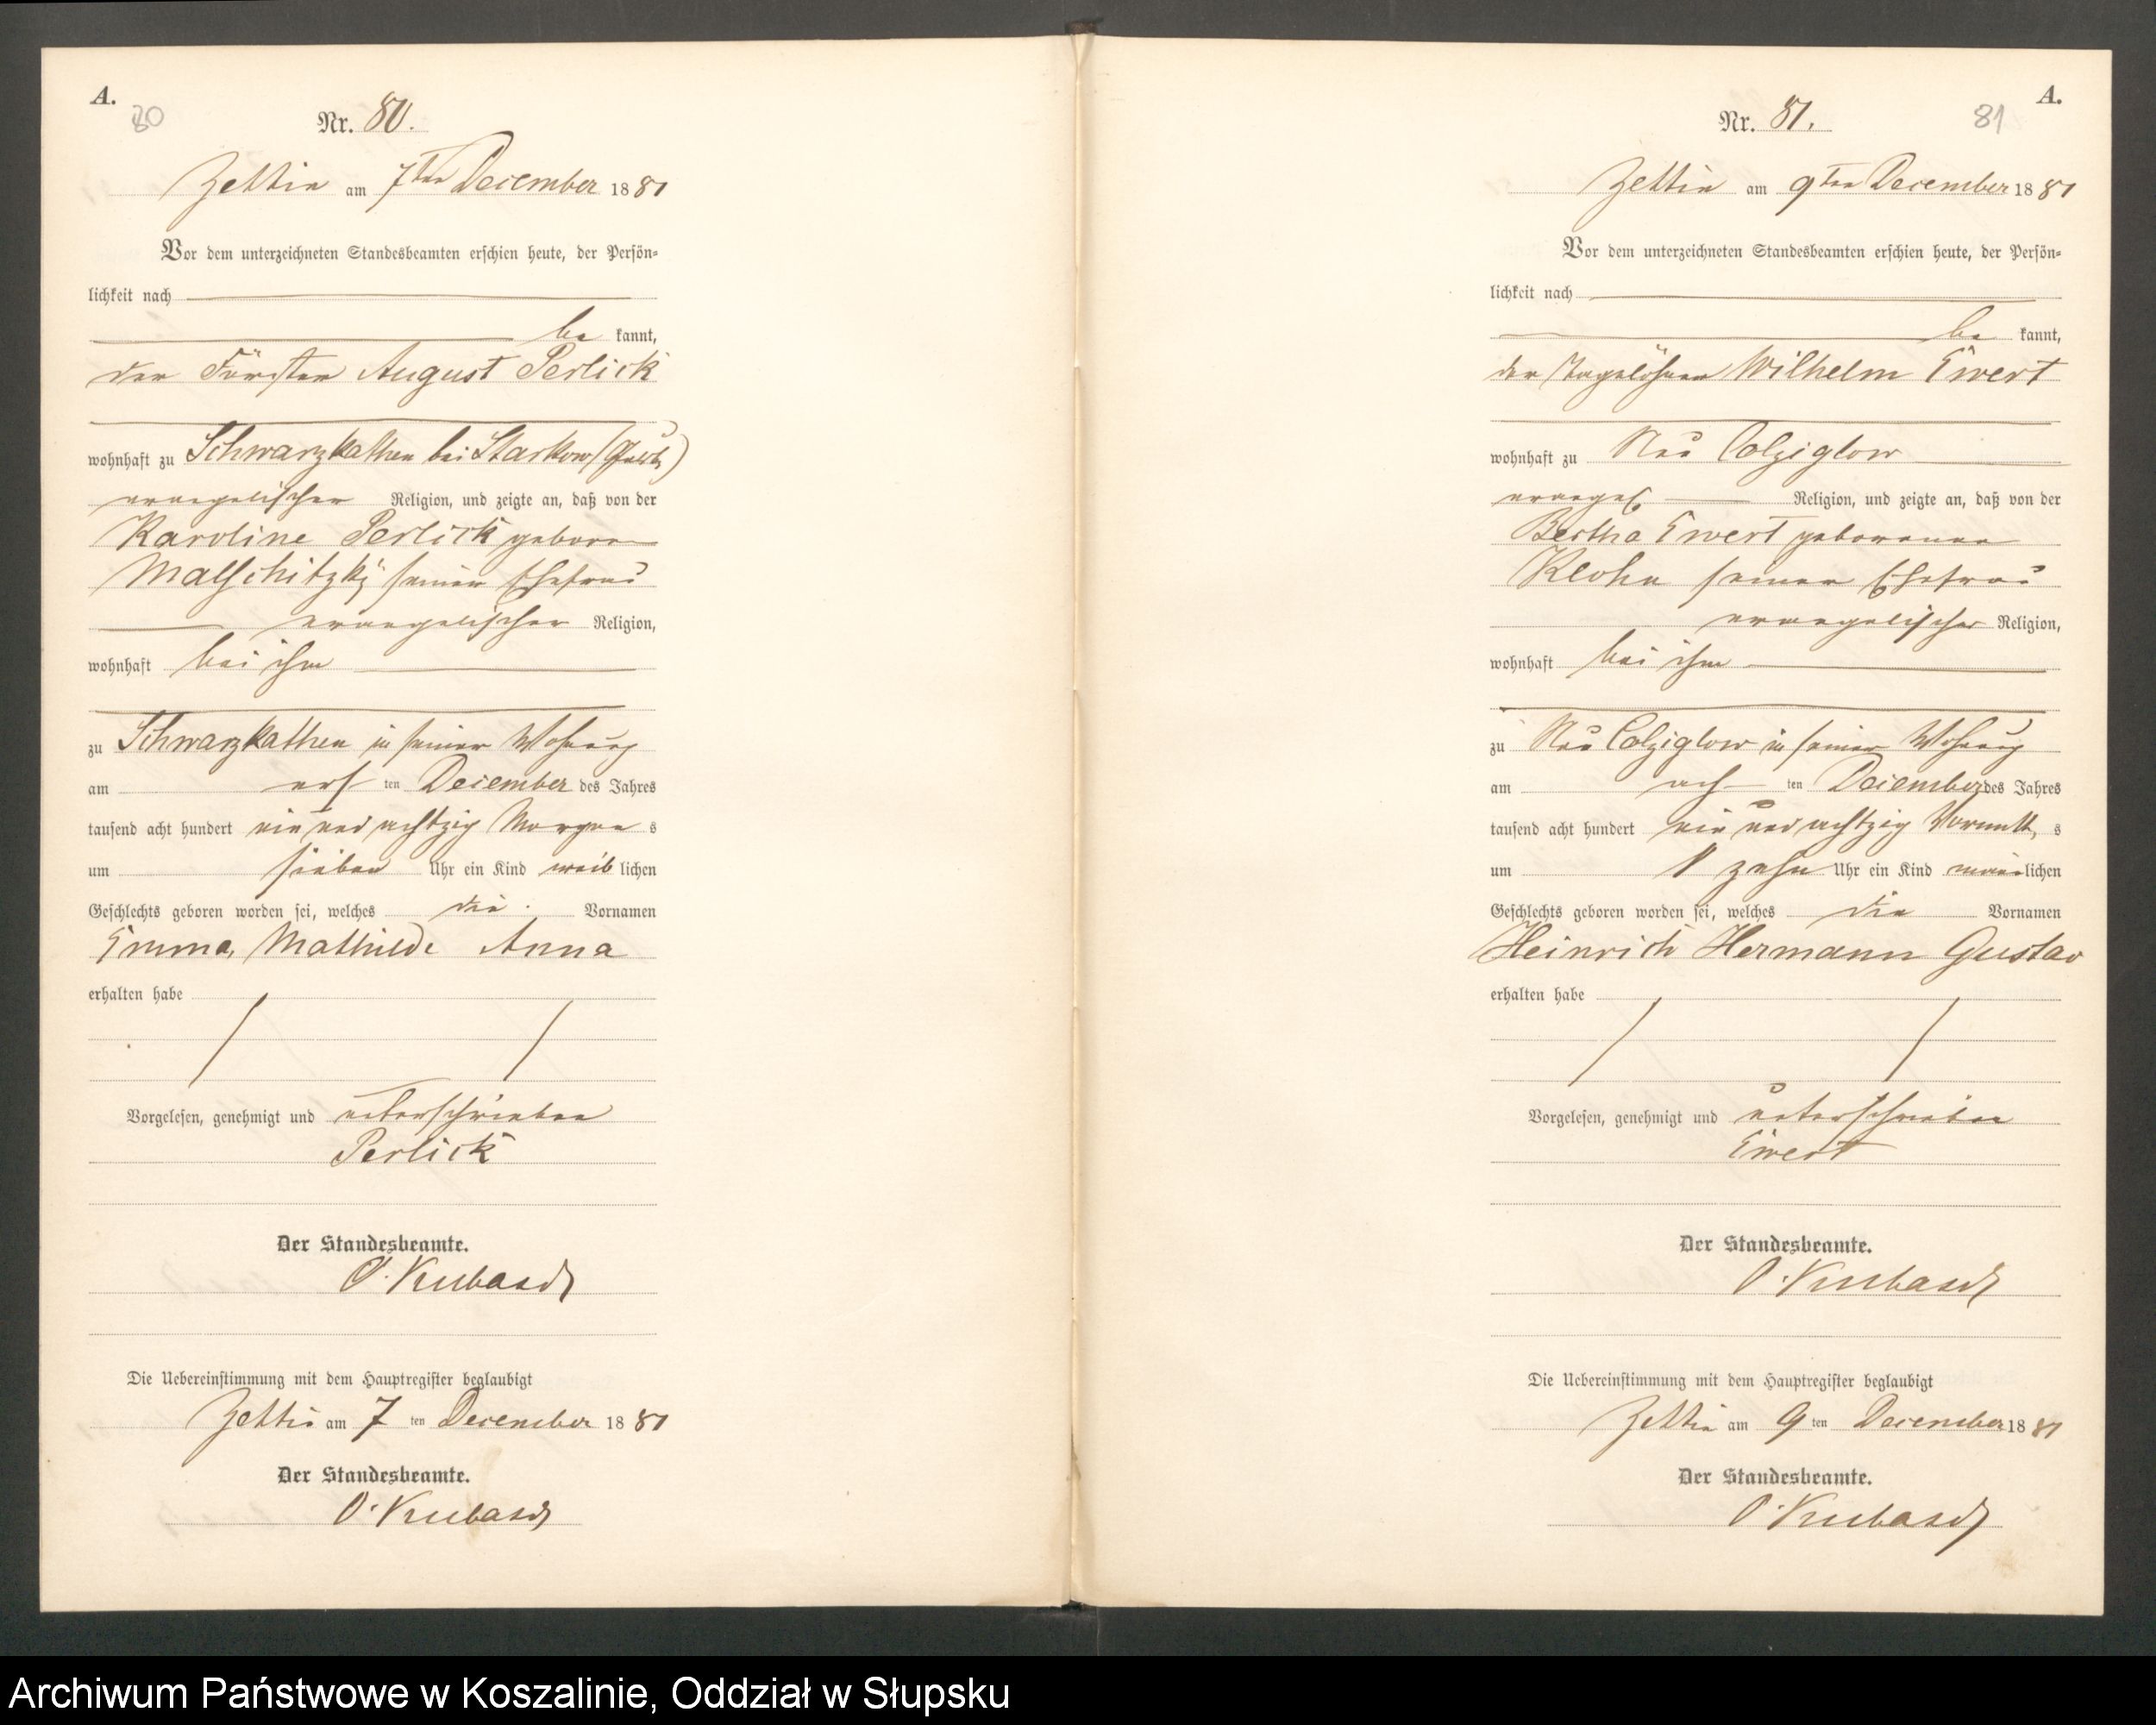 A.
80
Nr. 80.
Zettin am 7ten December 1881
Vor dem unterzeichneten Standesbeamten erschien heute, der Persön-
lichkeit nach
be kannt,
der Förster August Perlick
wohnhaft zu Schwarzkathen bei Starkow
evangelischer Religion, und zeigte an, daß von der
Karoline Perlick geboren
Malschitzky seiner Ehefrau
evangelischer Religion,
wohnhaft bei ihm
zu Schwarzkathen in seiner Wohnung
am ersten December des Jahres
tausend acht hundert ein und achtzig Morgens
um sieben Uhr ein Kind weiblichen
Geschlechts geboren worden sei, welches die Vornamen
Emma, Mathilde Anna
erhalten habe
Vorgelesen, genehmigt und unterschrieben
Perlick
Der Standesbeamte.
O. Kubasch
Die Uebereinstimmung mit dem Hauptregister beglaubigt
Zettin am 7 ten December 1881
Der Standesbeamte.
O. Kubasch
A.
81
Nr. 81.
Zettin am 9ten December 1881
Vor dem unterzeichneten Standesbeamten erschien heute, der Persön-
lichkeit nach
be kannt,
der Tagelöhner Wilhelm Ewert
wohnhaft zu Neu Colziglow
evangel. Religion, und zeigte an, daß von der
Bertha Ewert geborenen
Klohn seiner Ehefrau
evangelischer Religion,
wohnhaft bei ihm
zu Neu Colziglow in seiner Wohnung
am achten December des Jahres
tausend acht hundert ein und achtzig Vormitt. s
um zehn Uhr ein Kind männlichen
Geschlechts geboren worden sei, welches die Vornamen
Heinrich Hermann Gustav
erhalten habe
Vorgelesen, genehmigt und unterschrieben
Ewert
Der Standesbeamte.
O. Kubasch
Die Uebereinstimmung mit dem Hauptregister beglaubigt
Zettin am 9 ten December 1881
Der Standesbeamte.
O. Kubasch
Archiwum Państwowe w Koszalinie, Oddział w Słupsku